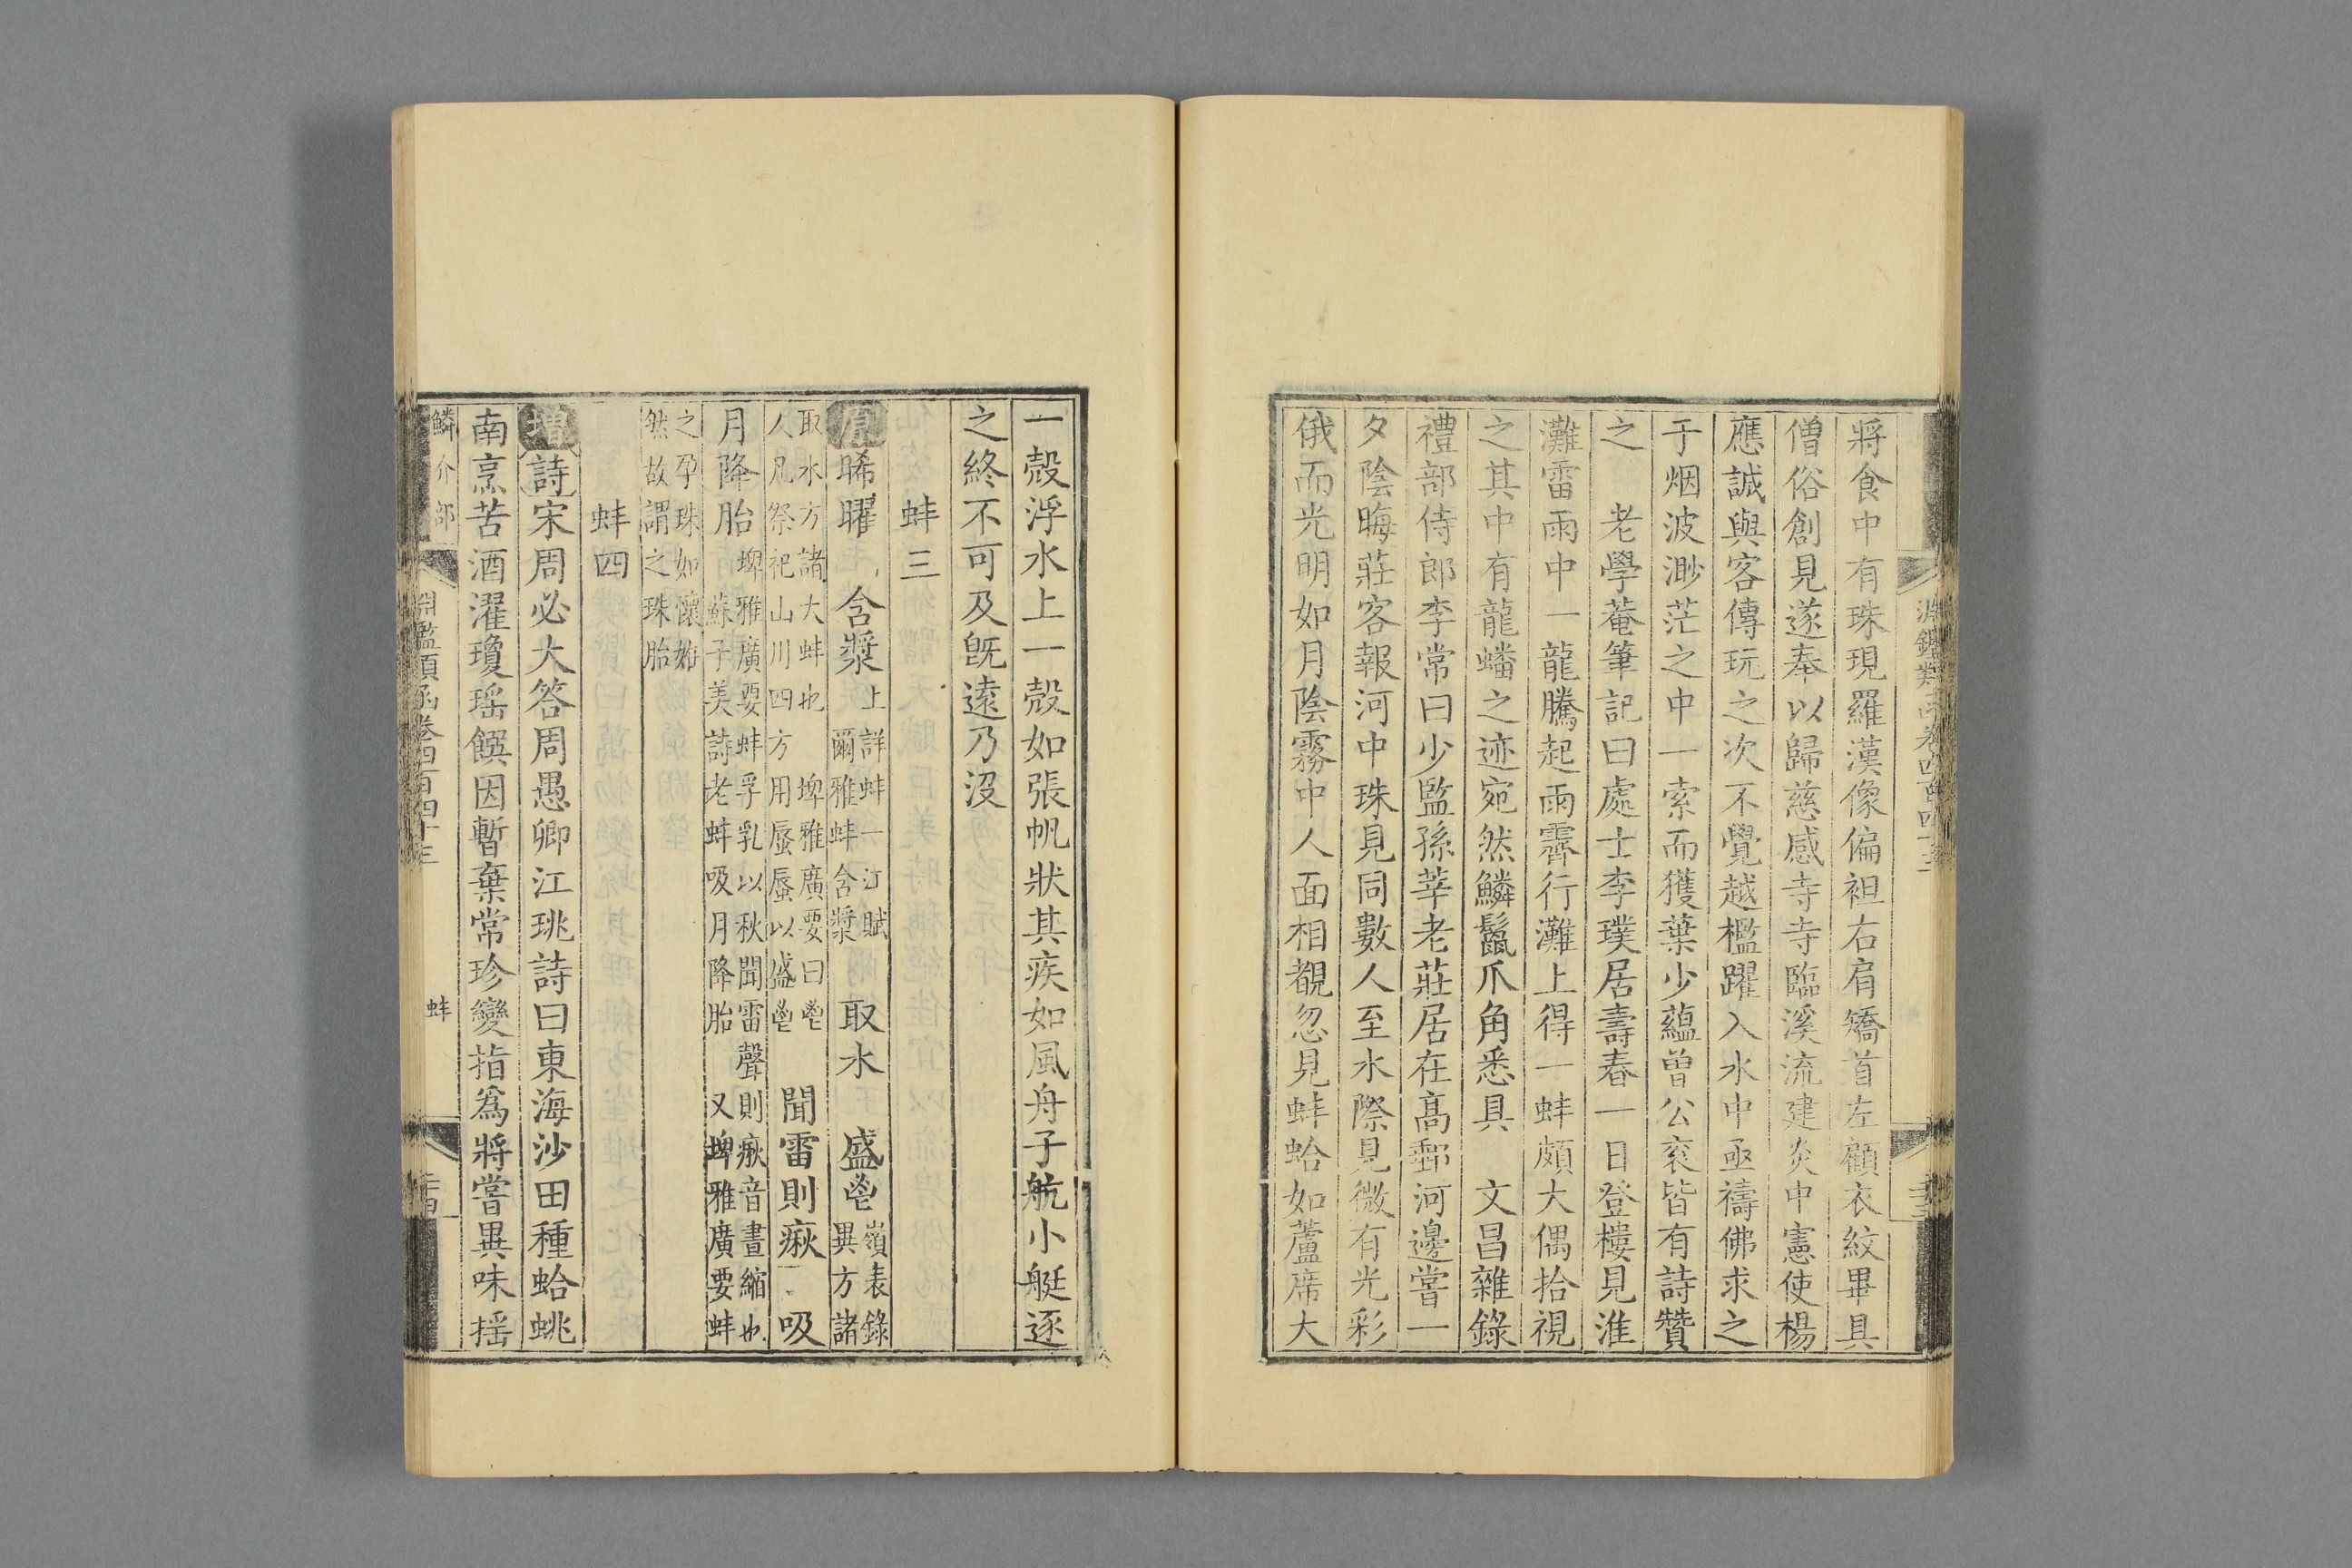 將食中有珠現羅漢像偏袒右肩矯首左顧衣紋畢具
僧俗創見遂奉以歸慈感寺寺臨溪流建炎中憲使楊
應誠與客傳玩之次不覺越檻躍入水中亟禱佛求之
于烟波渺茫之中一索而獲葉少蘊曾公衮皆有詩贊
之　老學菴筆記曰處士李璞居壽春一日登樓見淮
灘雷雨中一龍騰起雨霽行灘上得一蚌頗大偶拾視
之其中有龍蟠之迹宛然鱗鬣爪角悉具　文昌雜錄
禮部侍郎李常曰少監孫莘老莊居在高郵河邊嘗一
夕陰晦莊客報河中珠見同數人至水際見微有光彩
俄而光明如月陰霧中人面相覩忽見蚌蛤如蘆席大
一殼浮水上一殼如張帆狀其疾如風舟子航小艇逐
之終不可及旣遠乃沒
蚌三
原晞曜　含漿上詳蚌一江賦　爾雅蚌含漿　取水　盛鬯嶺表錄異方諸
取水方諸大蚌也　埤雅廣要曰鬯人凡祭祀山川四方用蜃蜃以盛鬯　聞雷則瘷　吸
月降胎埤雅廣要蚌孚乳以秋聞雷聲則瘷音晝縮也　蘇子美詩老蚌吸月降胎　又埤雅廣要蚌
之孕珠如懷妊然故謂之珠胎
蚌四
增詩宋周必大答周愚卿江珧詩曰東海沙田種蛤蜣
南烹苦酒濯瓊瑤饌因暫棄常珍變指爲將嘗異味搖
鱗介部　淵鑑類函卷四百四十三　蚌　二十四